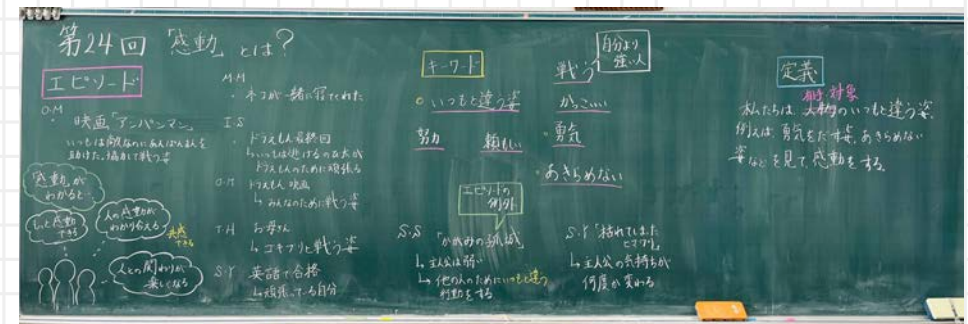 第24回 「感動」とは？
エピソード
O・M
映画「アンパンマン」
いつもは敵なのにあんぱんまんを
助けた。協力して戦う姿
「感動」が
わかると…
もっと感動
できる
人の感動が
わかり合える
共感
できる
人との関わりが
楽しくなる
M・M
・ネコが一緒に寝てくれた
I・S
・ドラえもん最終回
↳いつもは逃げるのび太が
ドラえもんのために頑張る
O・M ドラえもん 映画
↳みんなのために戦う姿
T・H お母さん
↳ゴキブリと戦う姿
S・Y 英語で合格
↳頑張っている自分
キーワード
○いつもと違う姿
努力 頼もしい
戦う
自分より
強い人
かっこいい
・勇気
・あきらめない
エピソードの
例外
S・S 「かがみの孤城」
↳主人公は弱い
↳他の人のためにいつもと違う
行動をする
S・Y 「枯れてしまった
ヒマワリ」
↳主人公の気持ちが
何度か変わる
定義
対象
私たちは、人物のいつもと違う姿、
例えば、勇気をだす姿、あきらめない
姿などを見て、感動をする。